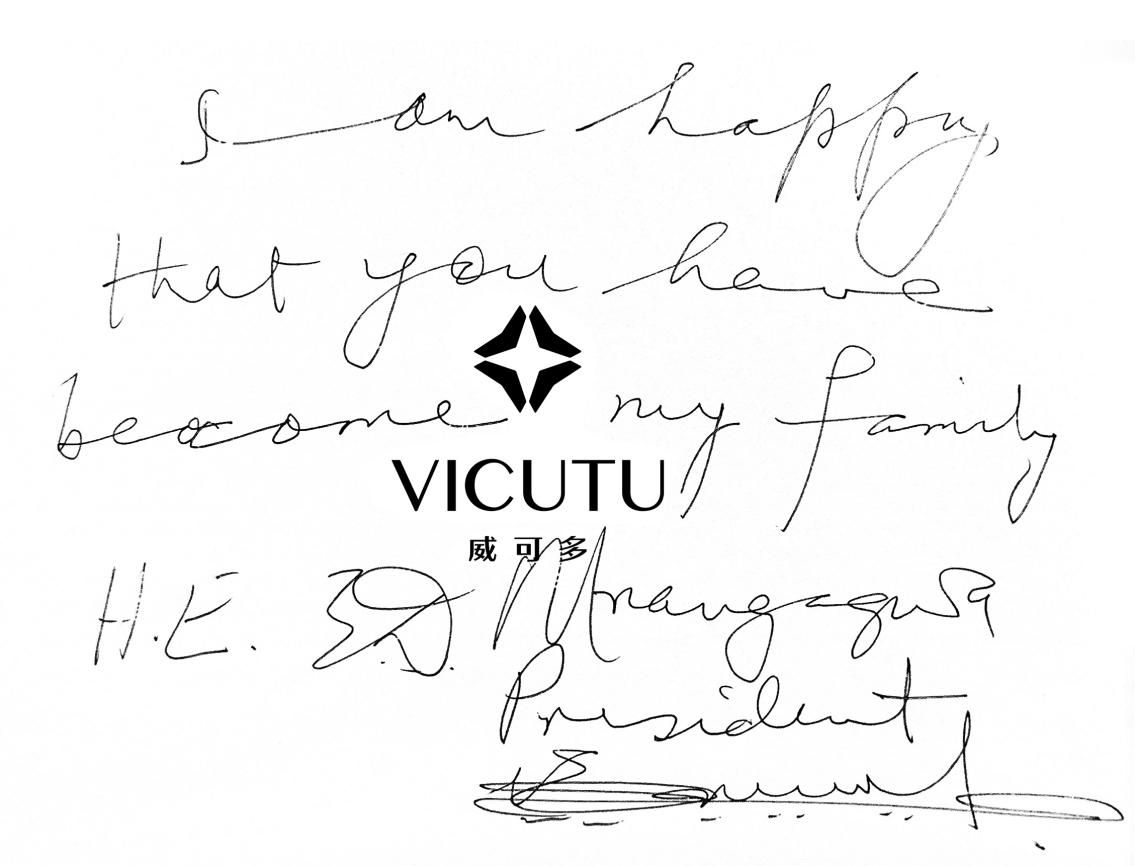 I am happy,
that you have
become my family
VICUTU
威可多
H.E. E.D. Mnangagwa
President